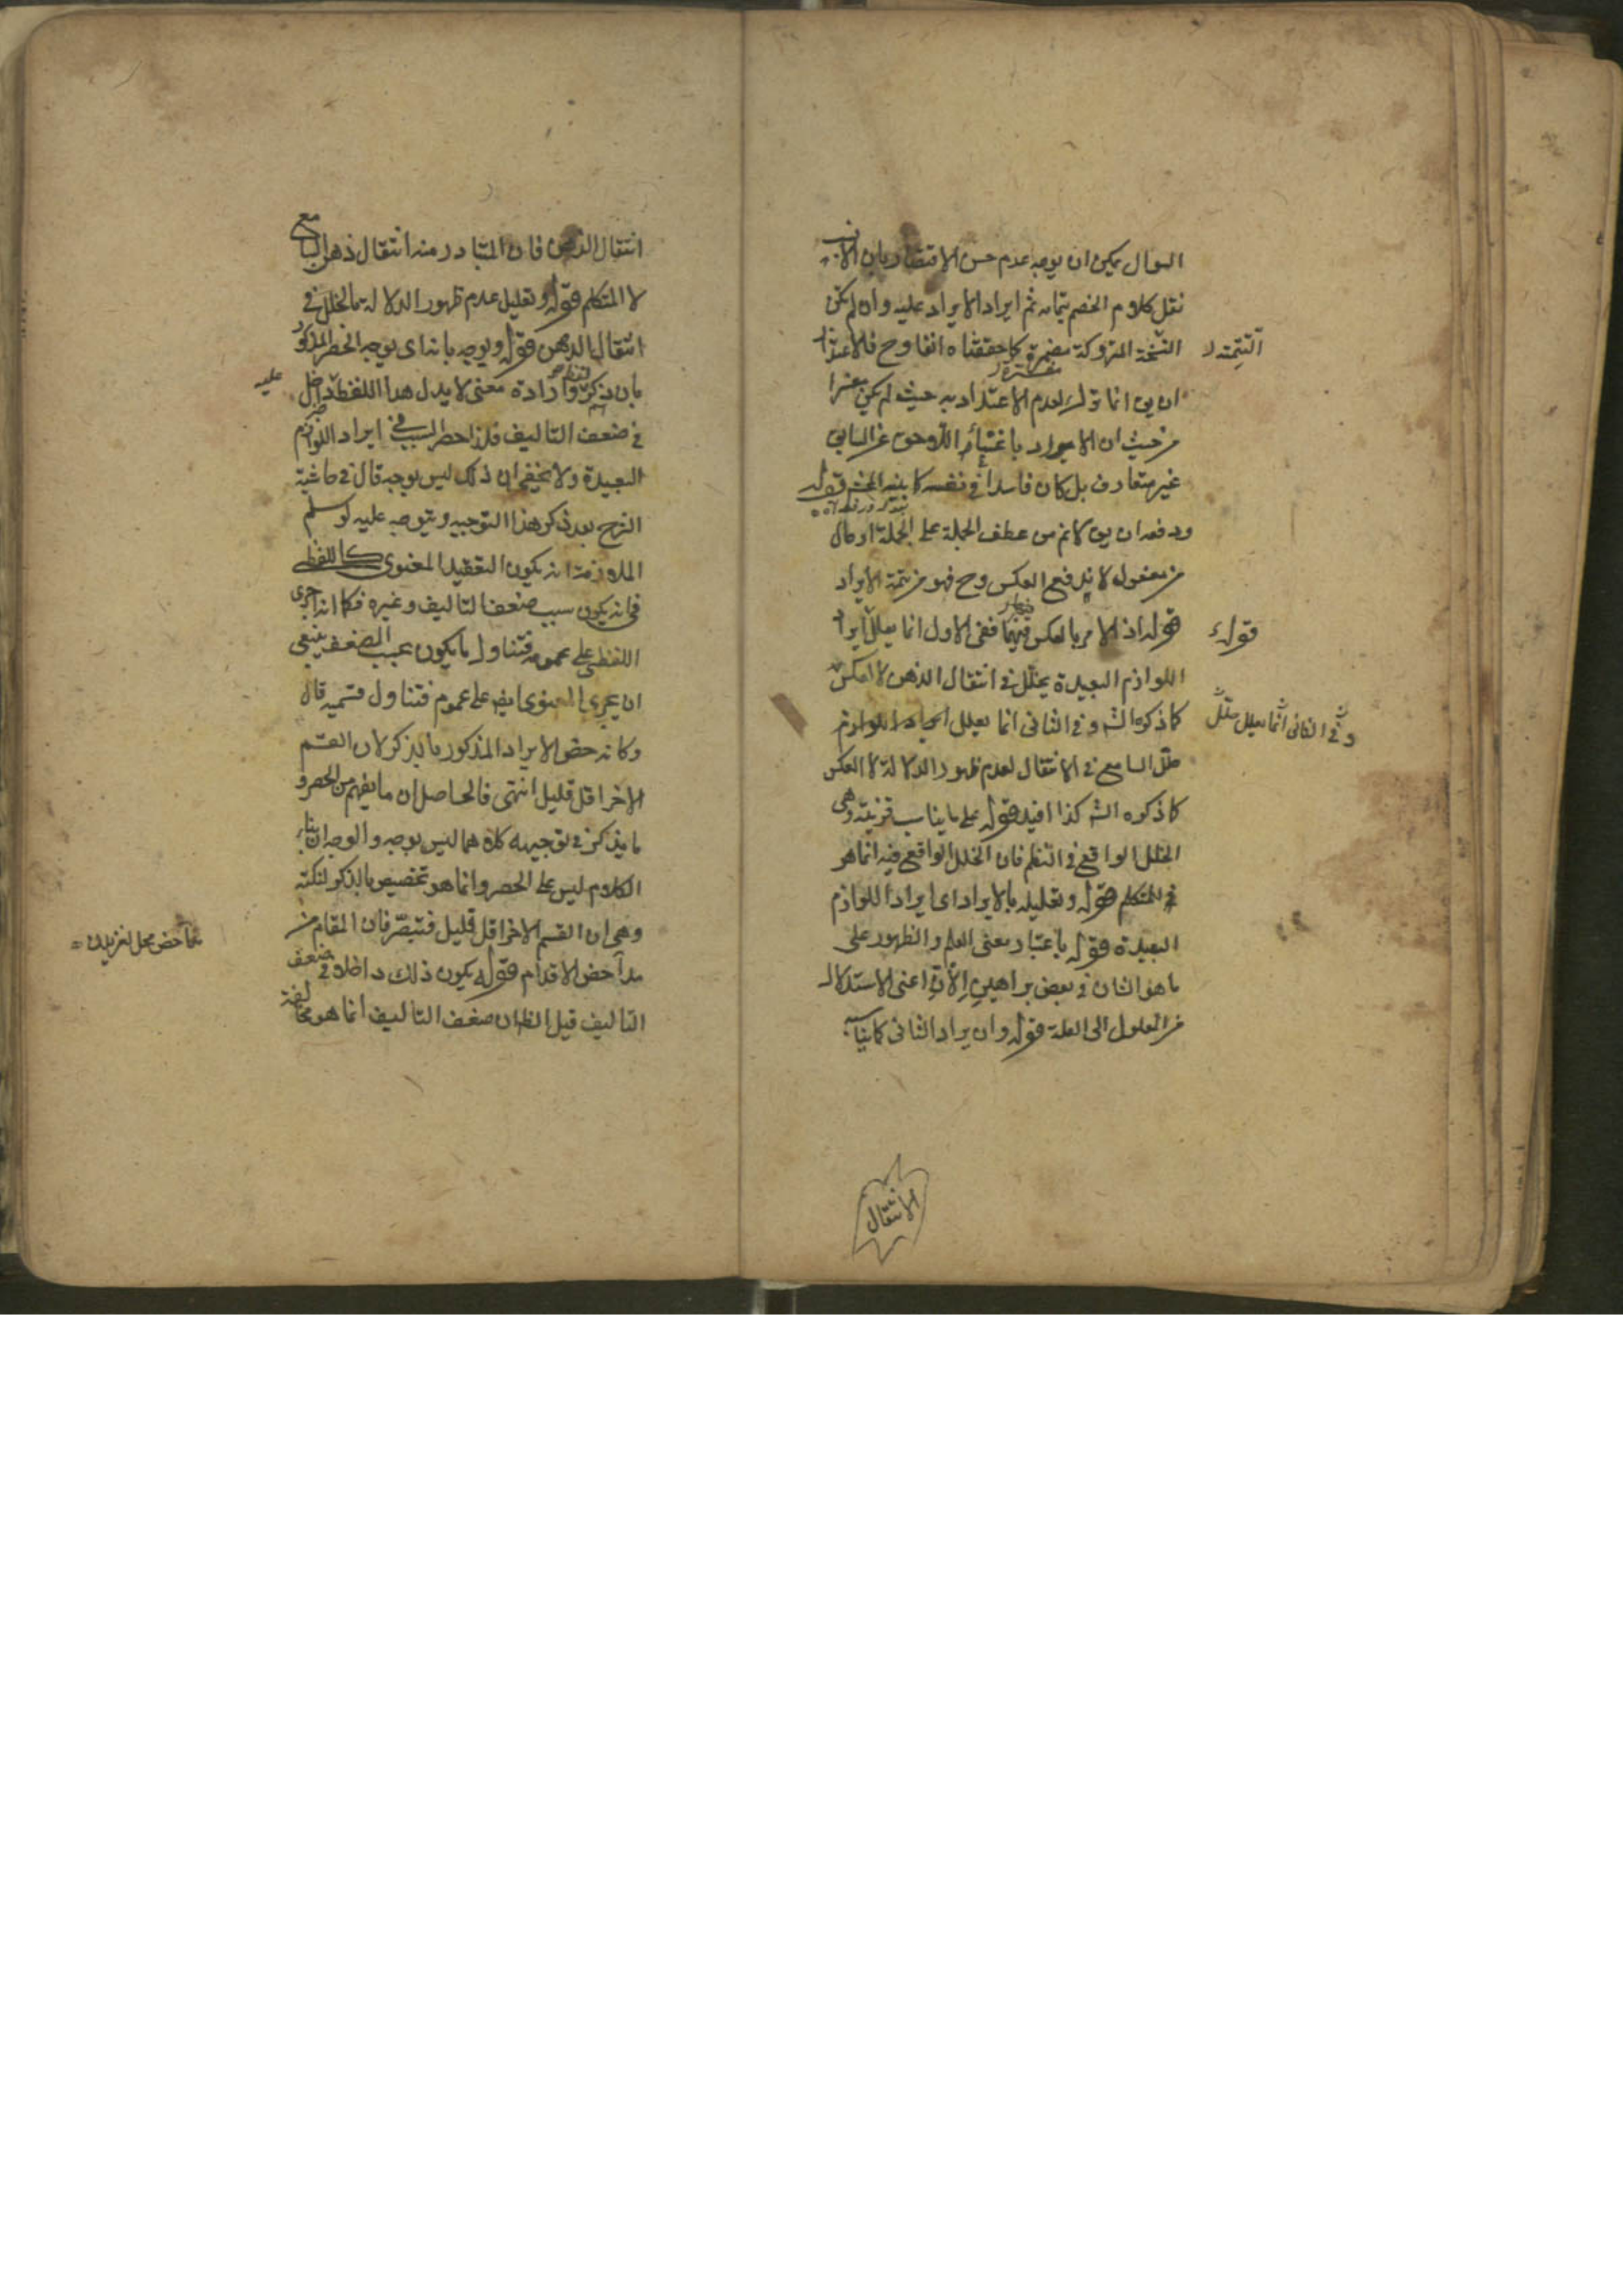 السؤال يمكن ان يوجه عدم حسن الاقتصار بان الانسب
نقل كلام الخصم بتمامه ثم ايراد الايراد عليه وان لم يكن
النسخة المتروكة مضمرة كما حققناه انفا وح فالاعتذار
التتمة
ان يق انما ترك لعدم الاعتداد به حيث لم يكن معتبرا
من حيث ان الايراد باعتبار اللاحق عن السابق
غير متعارف بل كان فاسدا في نفسه كما بينه المحشى قوله
ودفعه ان يق كانه من عطف الجملة على الجملة او حال
من مفعول لا يندفع العكس وح فهو من تتمة الايراد
قوله اذ الامر بالعكس فيهما ففى الاول انما يعلل ايراد
قوله
اللوازم البعيدة بخلل في انتقال الذهن لا العكس
كما ذكره الش وفى الثانى انما يعلل ايراد اللوازم
وفى الثانى انما يعلل خلل
خلل السامع في الانتقال لعدم ظهور الدلالة لا العكس
كما ذكره الش كذا افيد قوله على ما يناسب قرينته وهى
الخلل الواقع في النظم فان الخلل الواقع فيه انما هو
من المتكلم قوله وتعليله بالايراد اى ايراد اللوازم
البعيدة قوله باعتبار معنى العلم والظهور على
ما هو الشان في بعض براهين الإنّ اعنى الاستدلال
من المعلول الى العلة قوله وان يراد الثانى كما بيناه
الانتقال
انتقال الذهن فان المتبادر منه انتقال ذهن السامع
لا المتكلم قوله وتعليل عدم ظهور الدلالة بالخلل في
انتقال الذهن قوله ويوجه بانه اى يوجه الحصر المذكور
بان ذكر لفظ وارادة معنى لا يدل هذا اللفظ داخل
عليه
في ضعف التاليف فلذا حصر السبب في ايراد اللوازم
البعيدة ولا يخفى ان ذلك ليس بوجه قال في حاشية
الشرح بعد ذكر هذا التوجيه ويتوجه عليه لو سلم
الملازمة انه يكون التعقيد المعنوى كاللفظى
في انه يكون سبب ضعف التاليف وغيره فكما انه اجرى
اللفظى على عمومه فتناول ما يكون بسبب الضعف ينبغى
ان يجرى المعنوى ايض على عموم فتناول قسميه قال
وكانه خص الايراد المذكور بالذكر لان القسم
الاخر اقل قليل انتهى فالحاصل ان ما يفهم من الحصر و
ما يذكر في توجيهه كلاهما ليس بوجه والوجه ان بناء
الكلام ليس على الحصر وانما هو تخصيص بالذكر لنكتة
وهى ان القسم الاخر اقل قليل فتبصر فان المقام من
مداحض الاقدام قوله يكون ذلك داخلا في ضعف
مداحض محل لغزيدن
التاليف قيل الظ ان ضعف التاليف انما هو مخالفة